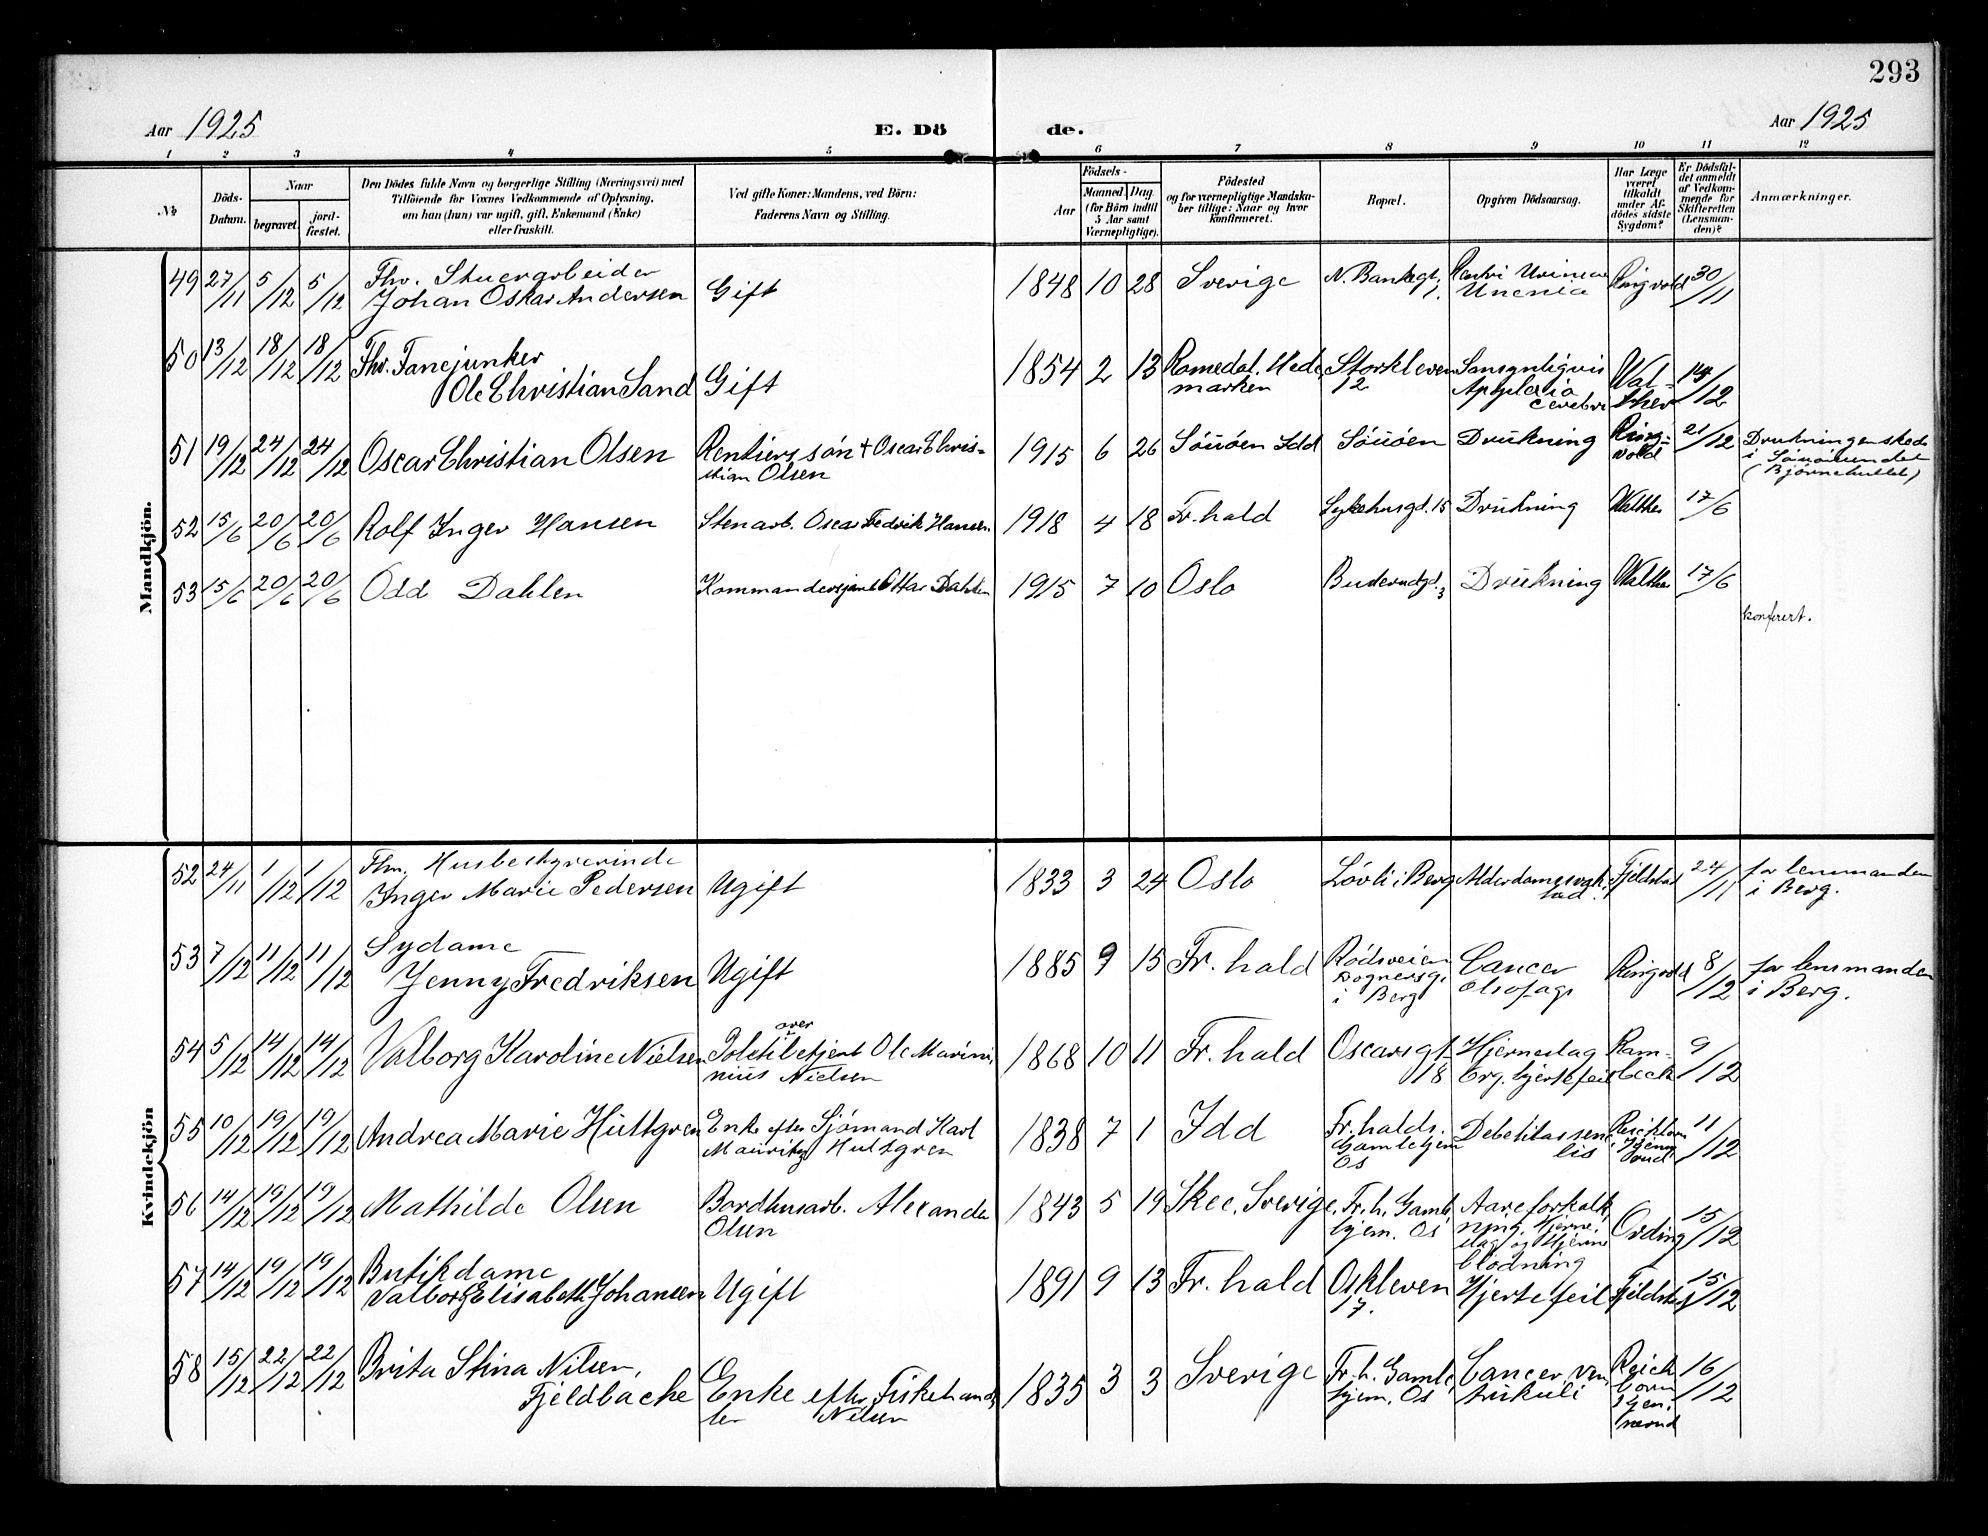 293
Aar 1925
E. Dö de.
Aar 1925
1 2 3 4 5 6 7 8 9 10 11 12
No
Döds-
Datum.
Naar
begravet.
jord-
fæstet.
Den Dödes fulde Navn og borgerlige Stilling (Næringsvei) med
Tilföiende for Voxnes Vedkommende af Oplysning,
om han (hun) var ugift, gift, Enkemand (Enke)
eller fraskilt.
Ved gifte Koner: Mandens, ved Börn:
Faderens Navn og Stilling.
Födsels-
Aar
Maaned Dag
(for Börn indtil
5 Aar samt
Værnepligtige).
Födested
og for værnepligtige Mandska-
ber tillige: Naar og hvor
konfirmeret.
Bopæl.
Opgiven Dödsaarsag.
Har Læge
været
tilkaldt
under Af-
dödes sidste
Sygdom?
Er Dödsfal-
det anmeldt
af Vedkom-
mende for
Skifteretten
(Lensman-
den)?
Anmærkninger.
Mandkjön.
49 27/11 5/12 5/12 Fhv. Stuerarbeider
Johan Oskar Andersen Gift 1848 10 28 Sverige N. Bankegt. 1. Ringvold 30/11
50 13/12 18/12 18/12 Fhv. Fanejunker
Ole Christian Sand Gift 1854 2 13 Romedal. Hede
marken Storkleven
12 Sansynligvis
Apoplexia
cerebri Wal-
ther 14/12
51 19/12 24/12 24/12 Oscar Christian Olsen Rentiers søn + Oscar Chris-
tian Olsen 1915 6 26 Sauøen Idd Sauøen Drukning Ring-
vold 21/12 Drukningen skede
i
(Bjørnehullet)
52 15/6 20/6 20/6 Rolf Inger Hansen Stenarb. Oscar Fredrik Hansen 1918 4 18 Fr.hald Sykehusgd. 15 Drukning Walther 17/6
53 15/6 20/6 20/6 Odd Dahlen Kommandersjant Ottar Dahlen 1915 7 10 Oslo 3 Drukning Walther 17/6
konferert.
Kvindekjön
52 24/11 1/12 1/12 Fhv. Husbestyrerinde
Inger Marie Pedersen Ugift 1833 3 24 Oslo Løvli i Berg Alderdomssvak-
had. Fjeldstad 24/11 for lensmanden
i Berg.
53 7/12 11/12 11/12 Sydame
Jenny Fredriksen Ugift 1885 9 15 Fr. hald Rødsveien
i Berg Cancer
Øsofagi Ringvold 8/12 for lensmanden
i Berg.
54 5/12 14/12 14/12 Valborg Karoline Nielsen over
Politibetjent Ole Marini-
nius Nielsen 1868 10 11 Fr. hald Oscarsgt.
18 Hjerneslag
Org. hjertefeil Ram-
beck 9/12
55 10/12 19/12 19/12 Andrea Marie Hultgren Enke efter Sjømand Karl
Mauritz Hultgren 1838 7 1 Idd Fr.halds.
Gamlehjem
Os Debelitas seni-
lis 11/12
56 14/12 19/12 19/12 Mathilde Olsen Bordhusarb. Alexander
Olsen 1843 5 19 Skee, Sverige Fr.h. Gamle
hjem. Os Aareforkalk
ning, Hjerne-
slag og Hjerne
blødning Ording 15/12
57 14/12 19/12 19/12 Butikdame
Valborg Elisabeth Johansen Ugift 1891 9 13 Fr. hald Oskleven
17. Hjertefeil Fjeldstad 15/12
58 15/12 22/12 22/12 Brita Stina Nilsen,
Fjeldbacke Enke efter Fiskehand-
ler Nilsen 1835 3 3 Sverige Fr.h. Gamle
hjem. Os Cancer ven-
trikuli Reich
born
16/12